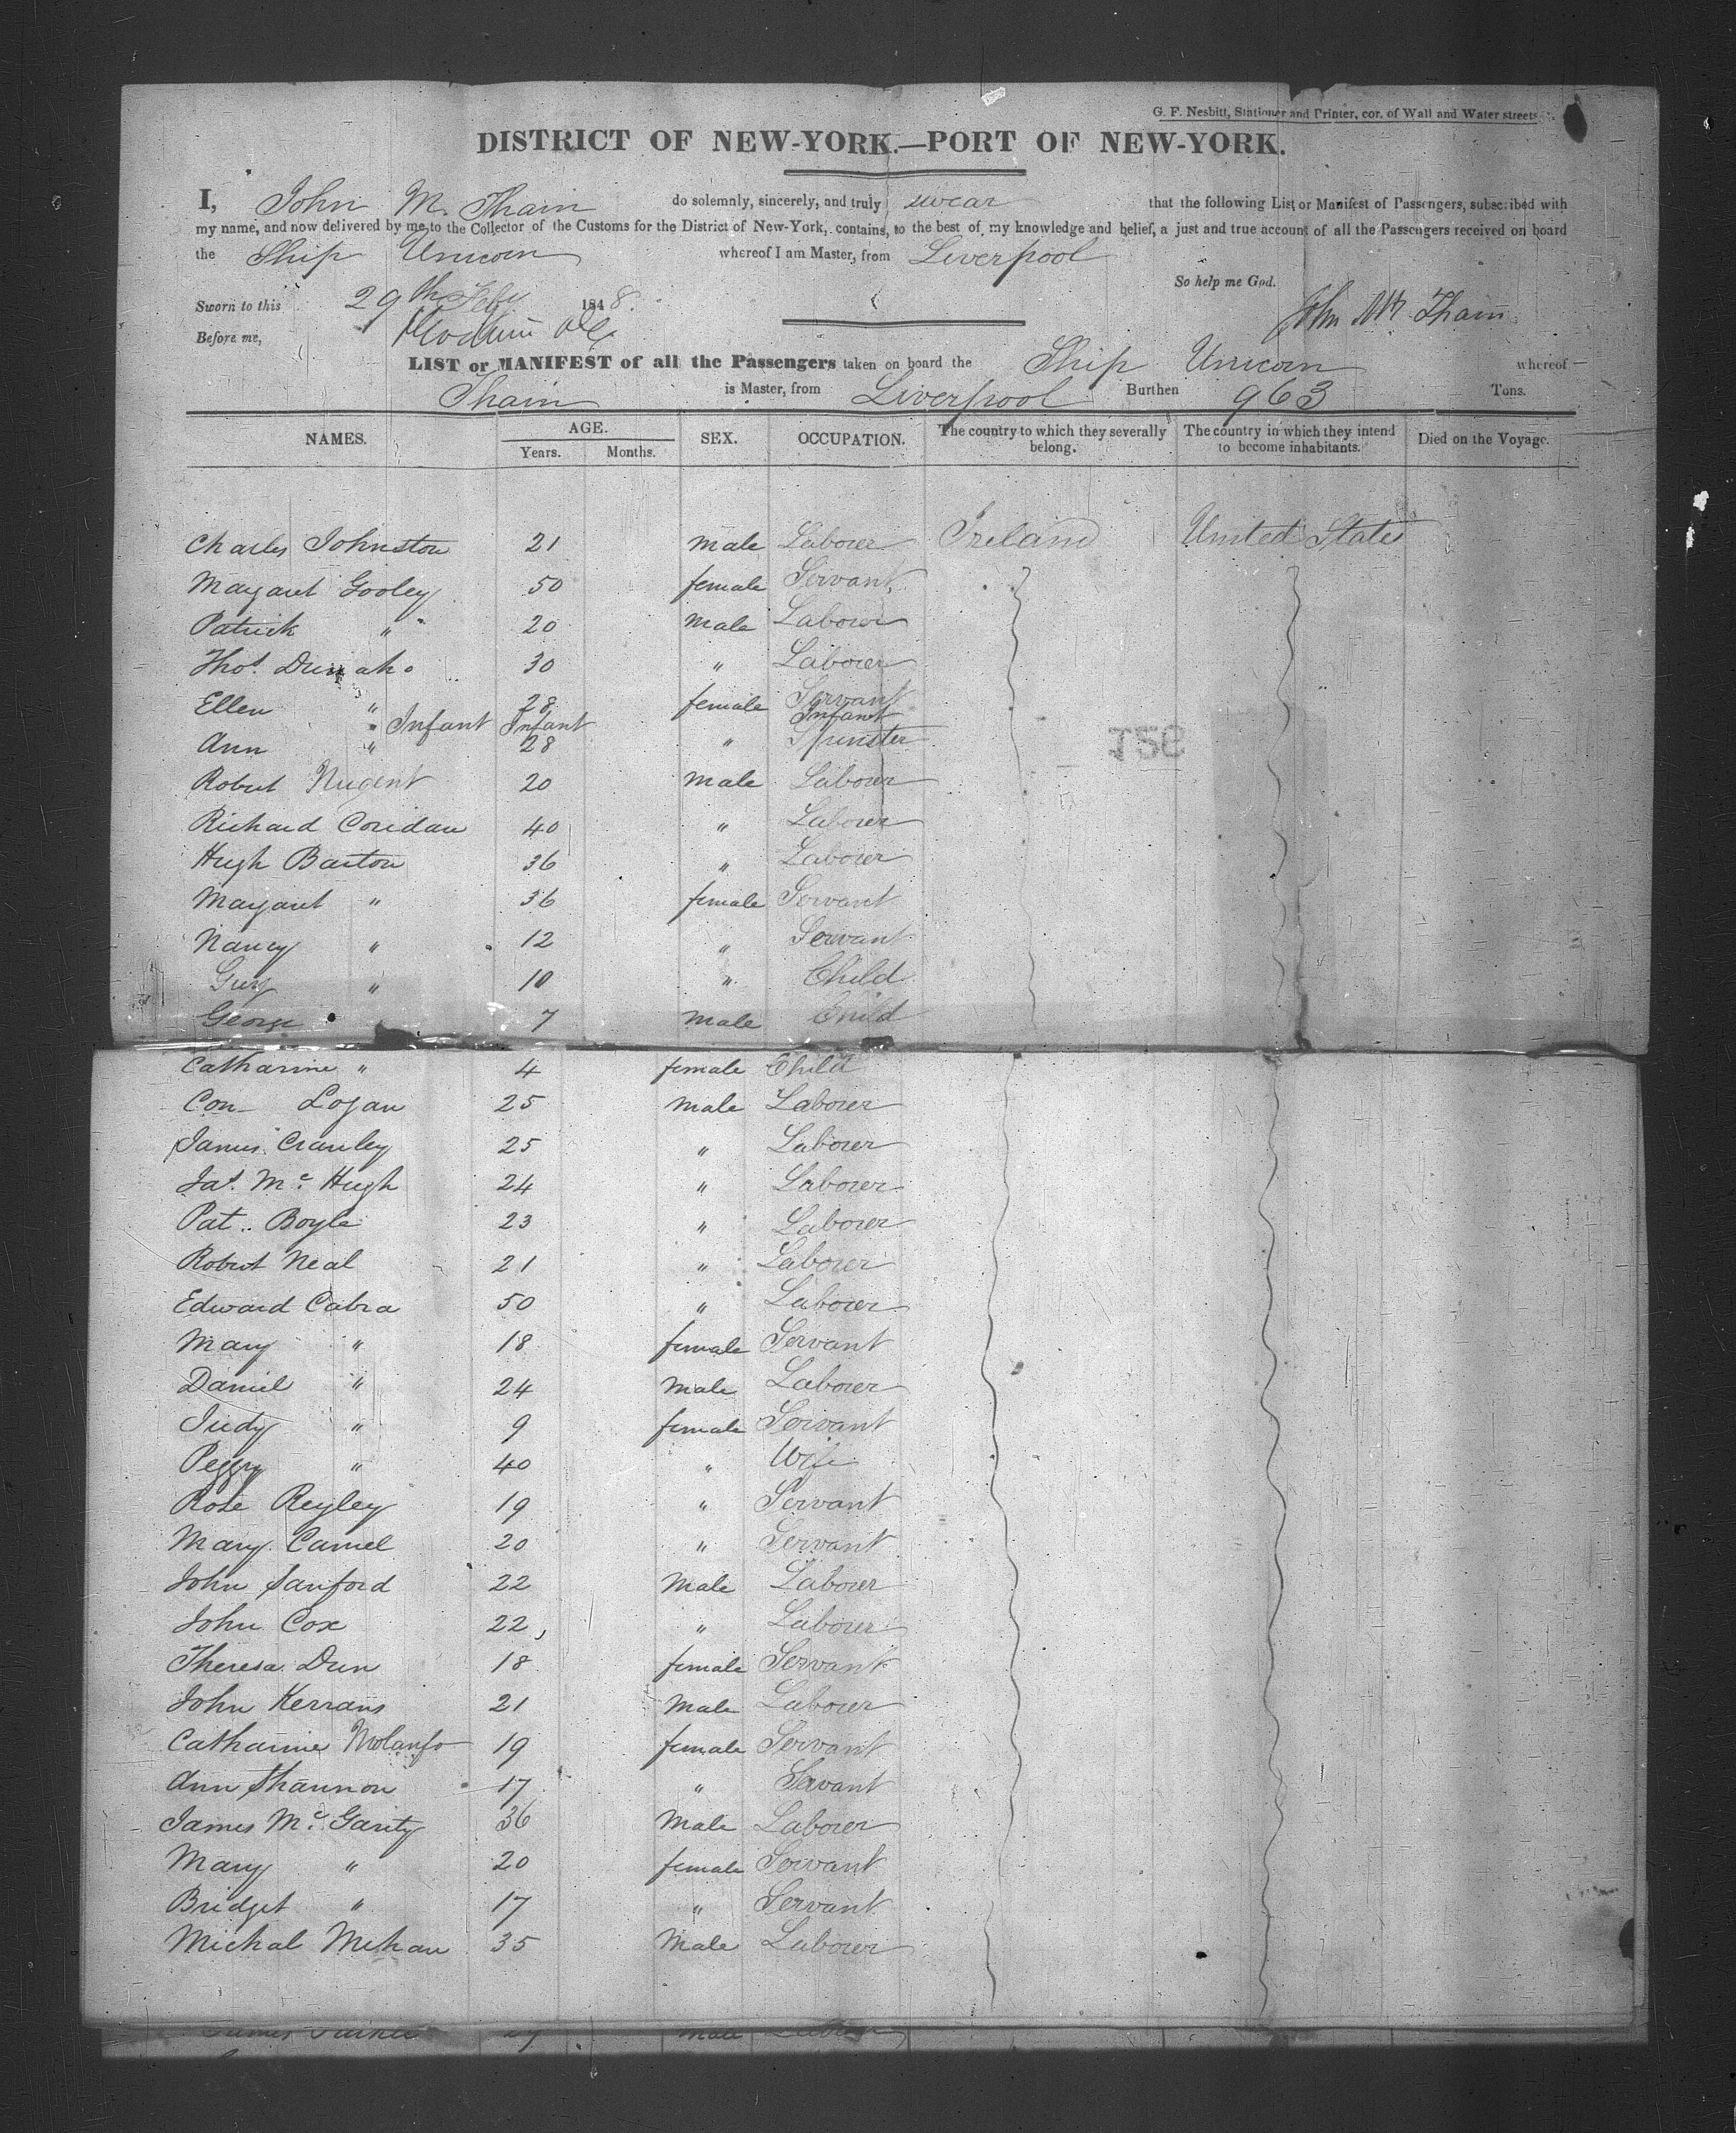 G. F. Nesbitt, Stationer and Printer, cor. of Wall and Water streets
DISTRICT OF NEW-YORK.—PORT OF NEW-YORK.
I, John M. Thain do solemnly, sincerely, and truly swear that the following List or Manifest of Passengers, subscribed with
my name, and now delivered by me to the Collector of the Customs for the District of New-York, contains, to the best of my knowledge and belief, a just and true account of all the Passengers received on board
the Ship Unicorn whereof I am Master, from Liverpool
So help me God.
Sworn to this 29th Feby 1848. John M. Thain
Before me,
LIST or MANIFEST of all the Passengers taken on board the Ship Unicorn whereof
Thain is Master, from Liverpool Burthen 963 Tons.
NAMES. AGE. SEX. OCCUPATION. The country to which they severally belong. The country in which they intend to become inhabitants. Died on the Voyage.
Years. Months.
Charles Johnston 21 male Laborer Ireland United States
Margaret Gooley 50 female Servant
Patrick " 20 male Laborer
Thos. 30 " Laborer
Ellen " 28 female Servant
" Infant Infant Infant
Ann " 28 " Spinster
Robert Nugent 20 male Laborer
Richard Coridan 40 " Laborer
Hugh Barton 36 " Laborer
Margaret " 36 female Servant
Nancy " 12 " Servant
" 10 " Child
George 7 male Child
Catharine " 4 female Child
Con Logan 25 male Laborer
James Crawley 25 " Laborer
Jas. Mc. Hugh 24 " Laborer
Pat.. Boyle 23 " Laborer
Robert Neal 21 " Laborer
Edward Cabra 50 " Laborer
Mary " 18 female Servant
Daniel " 24 male Laborer
Judy " 9 female Servant
Peggy " 40 " Wife
Rose Reyley 19 " Servant
Mary Camel 20 " Servant
John Sanford 22 male Laborer
John Cox 22, " Laborer
Theresa Dun 18 female Servant
John Kerrans 21 male Laborer
Catharine 19 female Servant
Ann Shannon 17 " Servant
James Mc. Garity 36 male Laborer
Mary " 20 female Servant
Bridget " 17 " Servant
Michal Mehan 35 male Laborer
126